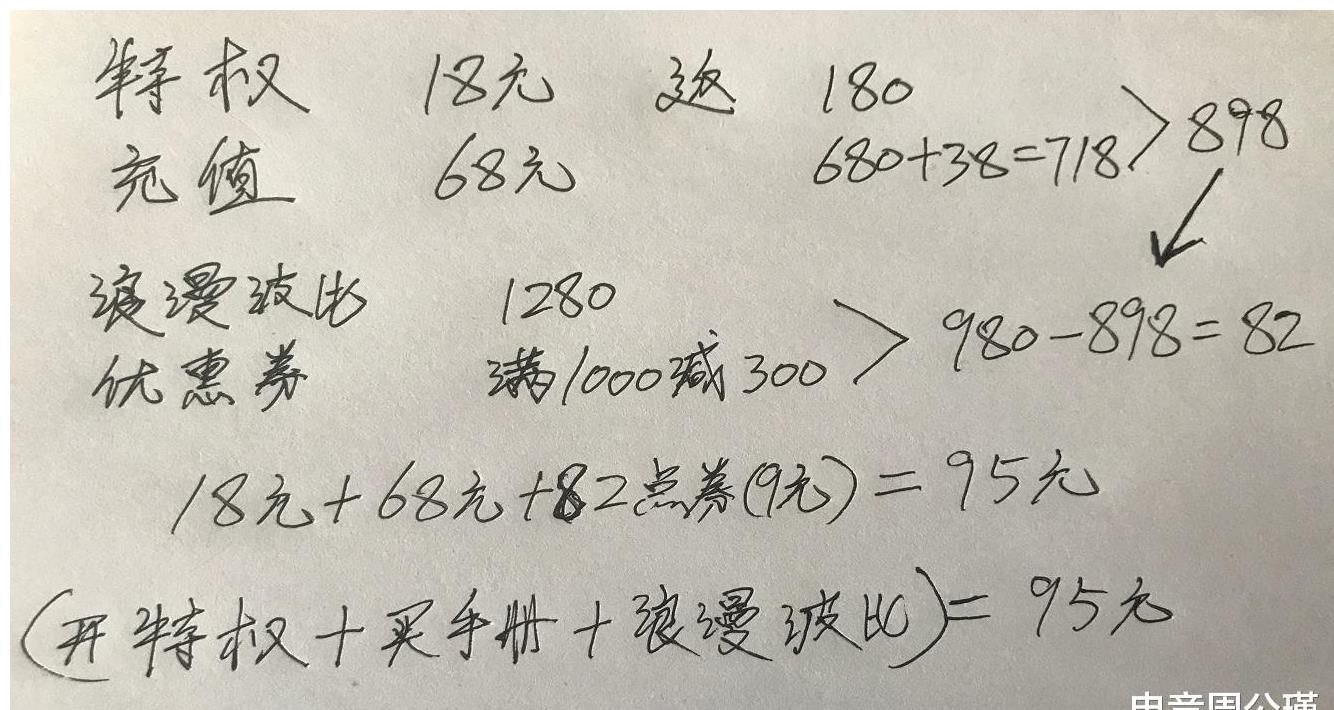 特权 18元 返 180
充值 68元 680+38=718 > 898
浪漫波比 1280
优惠券 满1000减300 > 980-898=82
18元+68元+82点券(9元)=95元
(开特权+买手册+浪漫波比)=95元
电竞周公瑾